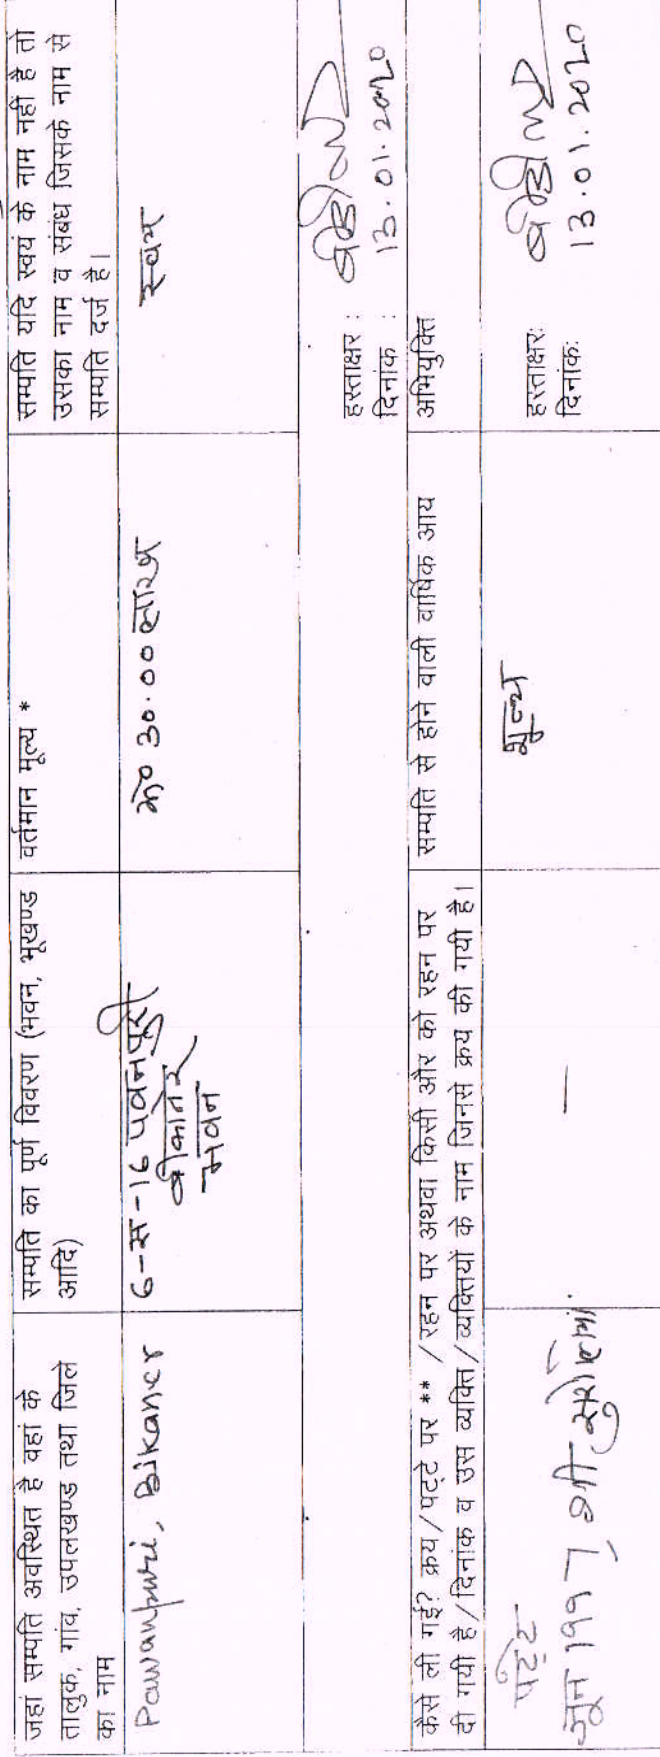 जहां सम्पति अवस्थित है वहां के
तालुक, गांव, उपलखण्ड तथा जिले
का नाम
सम्पति का पूर्ण विवरण (भवन, भूखण्ड
आदि)
वर्तमान मूल्य *
सम्पति यदि स्वयं के नाम नहीं है तो
उसका नाम व संबंध जिसके नाम से
सम्पति दर्ज है।
Pawanpuri, Bikaner
6-स-16 पवनपुरी
बीकानेर
भवन
रू0 30.00 लाख
स्वयं
हस्ताक्षर :
दिनांक : 13.01.2020
कैसे ली गई? क्रय/पट्टे पर ** /रहन पर अथवा किसी और को रहन पर
दी गयी है/दिनांक व उस व्यक्ति/व्यक्तियों के नाम जिनसे क्रय की गयी है।
सम्पति से होने वाली वार्षिक आय
अभियुक्ति
पट्टे
जून 1997, श्री
—
शून्य
हस्ताक्षर:
दिनांक: 13.01.2020